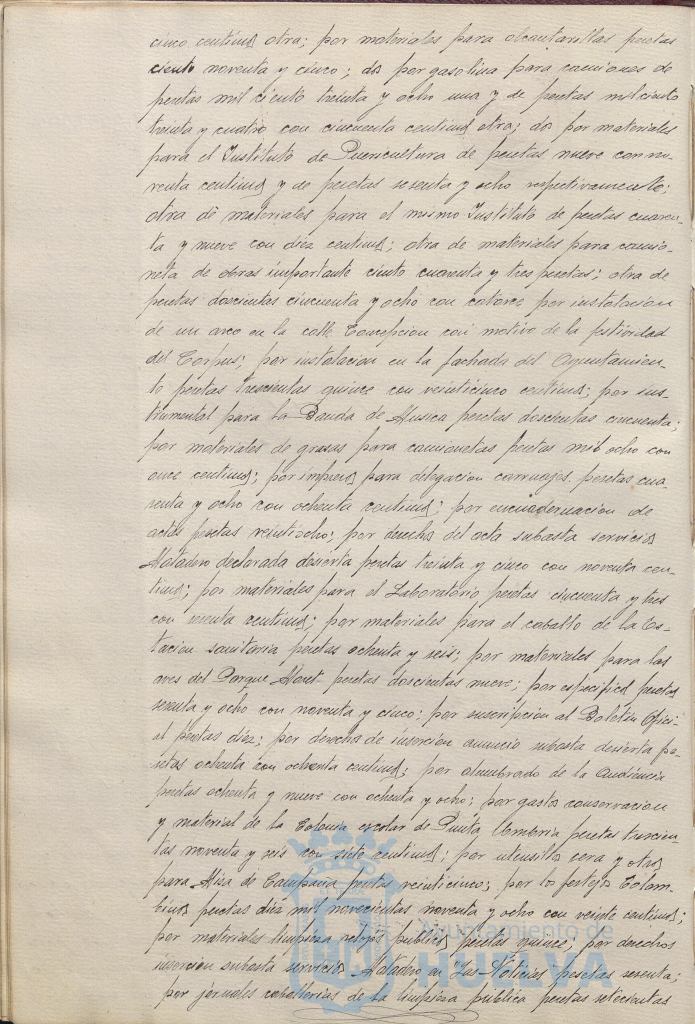 cinco centimos otra; por materiales para alcantarillas pesetas
ciento noventa y cinco; dos por gasolina para camiones de
pesetas mil ciento treinta y ocho una y de pesetas mil ciento
treinta y cuatro con cincuenta centimos otra; dos por materiales
para el Instituto de Puericultura de pesetas nueve con no-
venta centimos y de pesetas sesenta y ocho respectivamente;
otra de materiales para el mismo Instituto de pesetas cuaren-
ta y nueve con diez centimos; otra de materiales para camio-
neta de obras importante ciento cuarenta y tres pesetas; otra de
pesetas doscientas cincuenta y ocho con catorce por instalacion
de un arco en la calle Concepcion con motivo de la festividad
del Corpus; por instalacion en la fachada del Ayuntamien-
to pesetas trescientas quince con veinticinco centimos; por ins-
trumental para la Banda de Musica pesetas doscientas cincuenta;
por materiales de grasas para camionetas pesetas mil ocho con
once centimos; por impresos para delegacion carruajes pesetas cua-
renta y ocho con ochenta centimos; por encuadernacion de
actas pesetas veintiocho; por derechos del acta subasta servicios
Matadero declarada desierta pesetas treinta y cinco con noventa cen-
timos; por materiales para el Laboratorio pesetas cincuenta y tres
con centimos; por materiales para el caballo de la Es-
tacion sanitaria pesetas ochenta y seis; por materiales para las
aves del Parque Moret pesetas doscientas nueve; por especificos pesetas
y ocho con noventa y cinco; por suscripcion al Boletin Ofici-
al pesetas diez; por derechos de insercion anuncio subasta desierta pe-
setas ochenta con ochenta centimos; por alumbrado de la Audiencia
pesetas ochenta y nueve con ochenta y ocho; por gastos conservacion
y material de la Colonia escolar de Punta Umbria pesetas trescien-
tas noventa y seis con siete centimos; por utensilios cera y otros
para Misa de Campaña pesetas veinticinco; por los festejos Colom-
binos pesetas diez mil novecientas noventa y ocho con veinte centimos;
por materiales limpieza relojes publicos pesetas quince; por derechos
insercion subasta servicios Matadero en Las Noticias pesetas sesenta;
por jornales caballerias de la limpieza publica pesetas setecientas
Ayuntamiento de
HUELVA